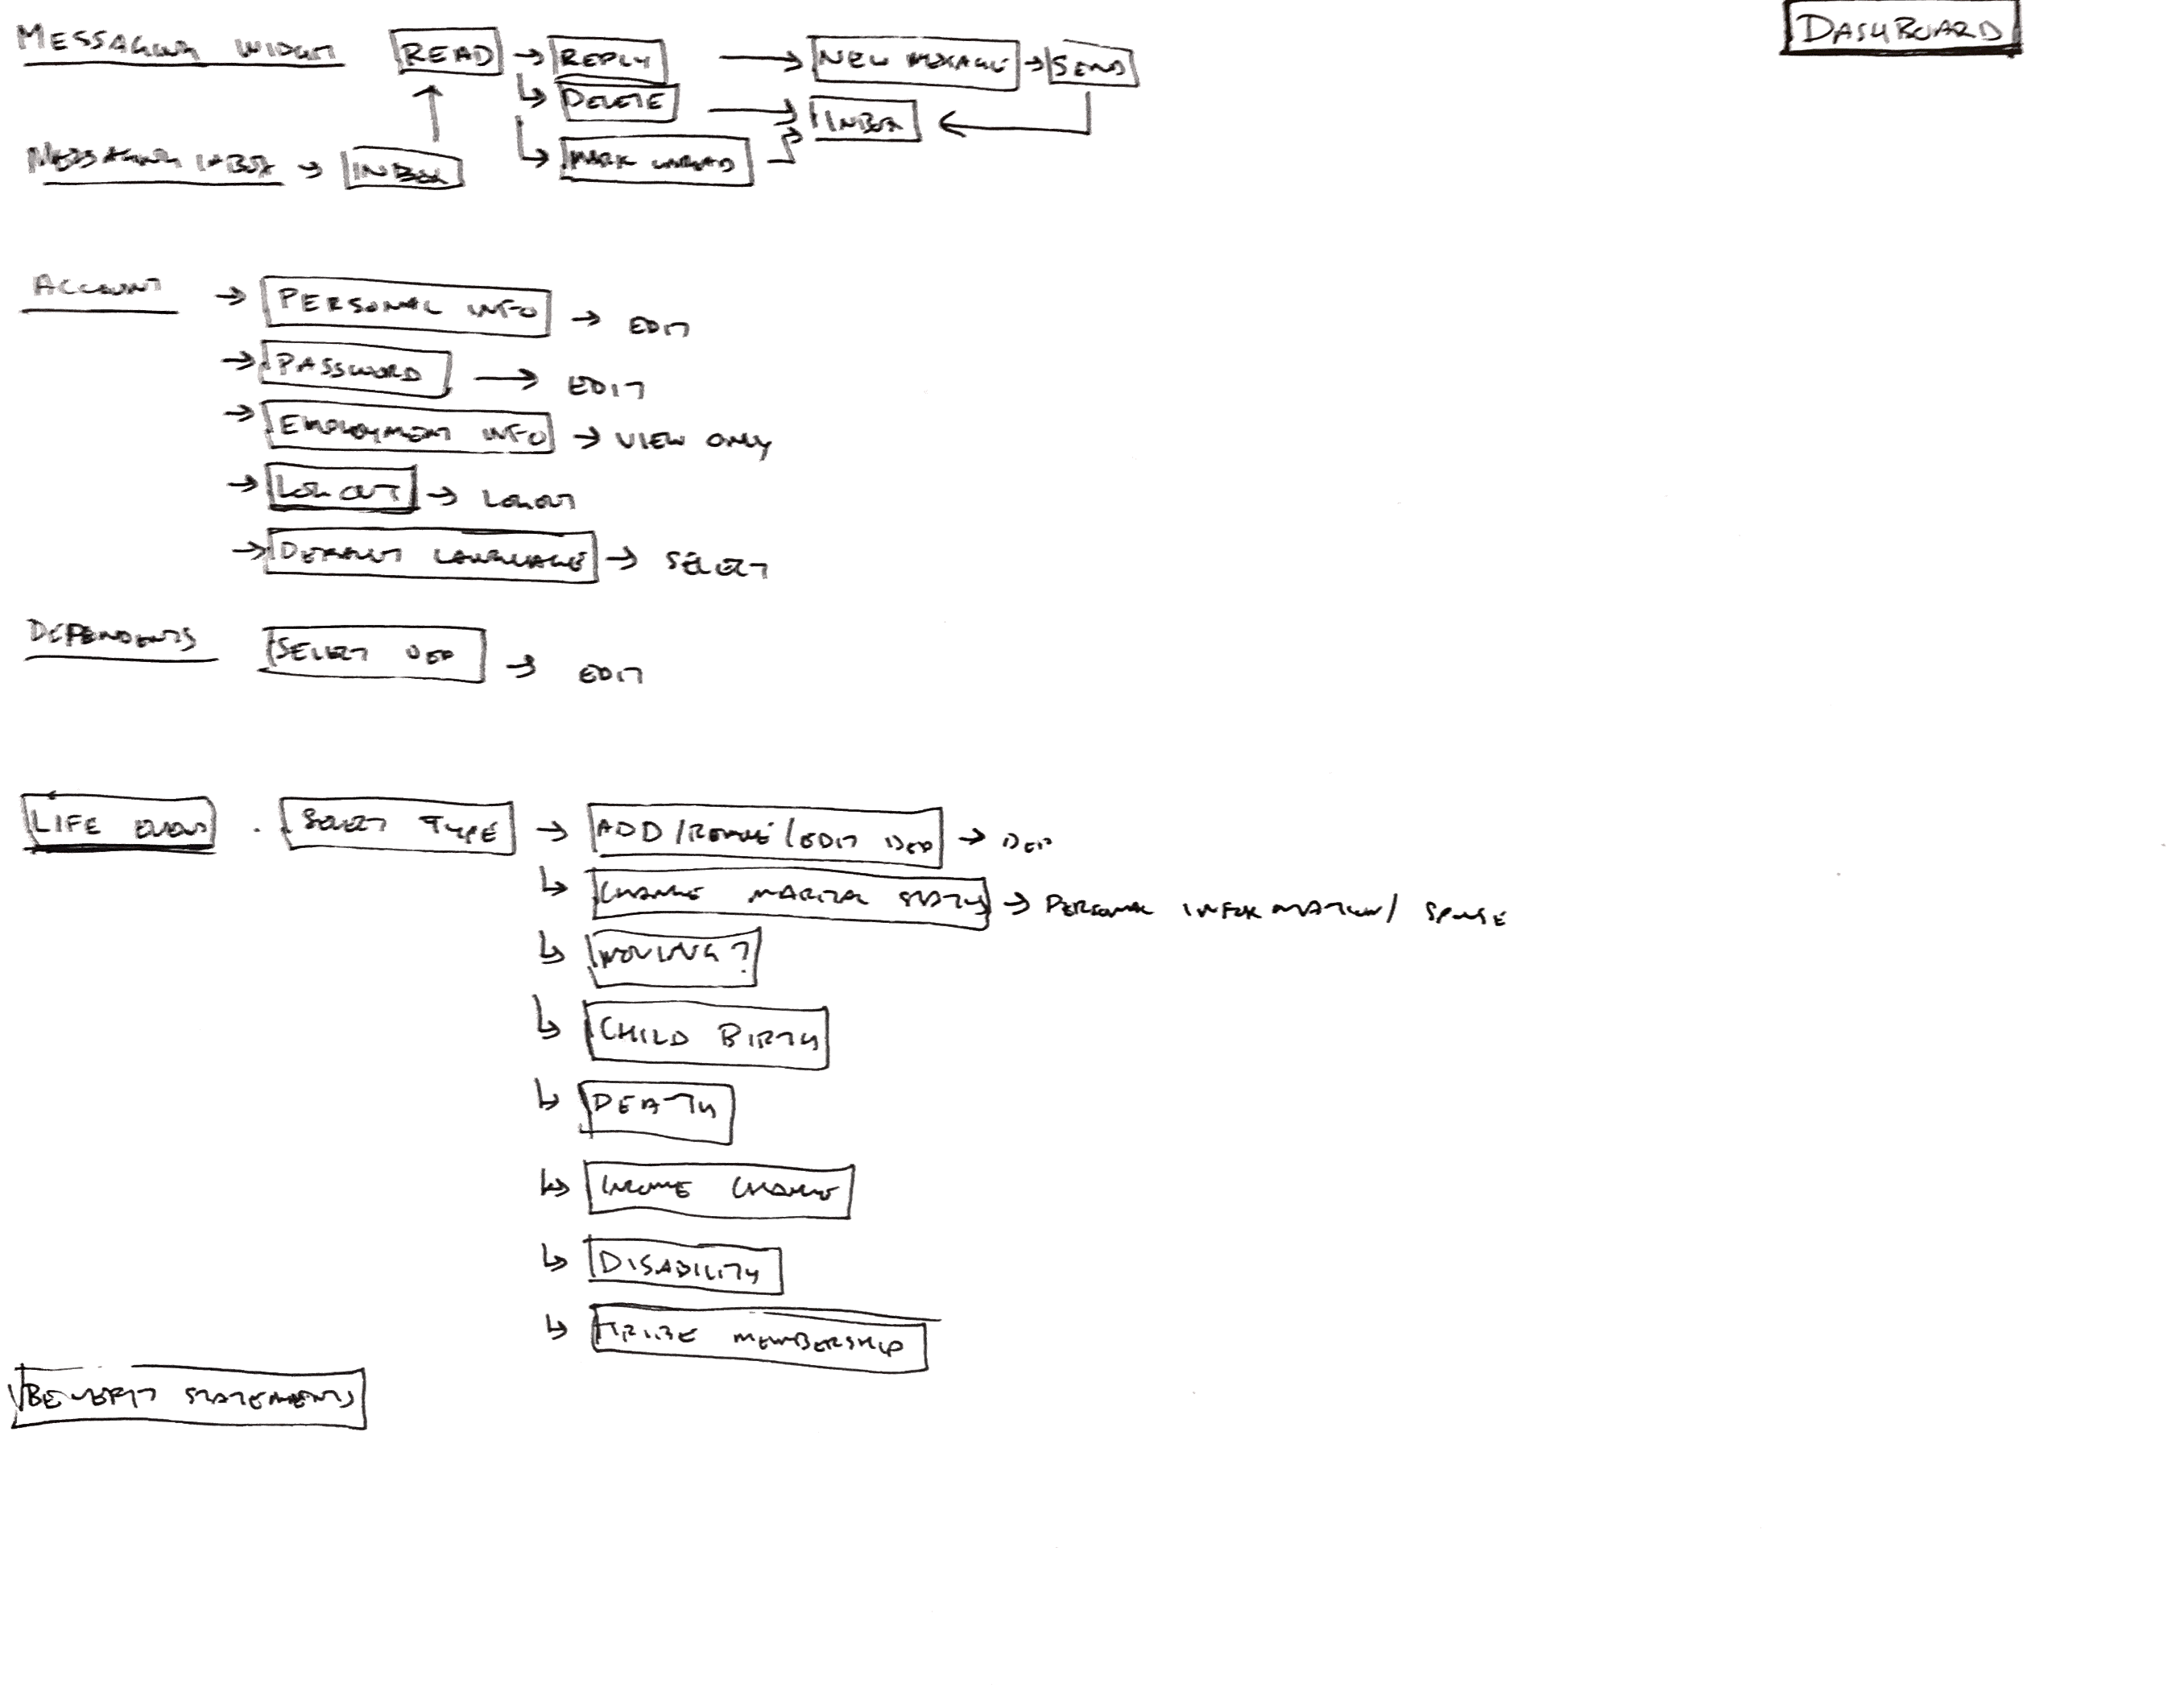 DASHBOARD
MESSAGING WIDGET READ → REPLY → NEW MESSAGE → SEND
DELETE → INBOX
MESSAGING INBOX → INBOX MARK UNREAD
ACCOUNT → PERSONAL INFO → EDIT
→ PASSWORD → EDIT
→ EMPLOYMENT INFO → VIEW ONLY
→ LOG OUT → LOGOUT
→ DEFAULT LANGUAGE → SELECT
DEPENDENTS SELECT DEP → EDIT
LIFE EVENT . SELECT TYPE → ADD / REMOVE / EDIT DEP → DEP
↳ CHANGE MARITAL STATUS → PERSONAL INFORMATION / SPOUSE
↳ MOVING?
↳ CHILD BIRTH
↳ DEATH
↳ INCOME CHANGE
↳ DISABILITY
↳ TRIBE MEMBERSHIP
BENEFIT STATEMENTS